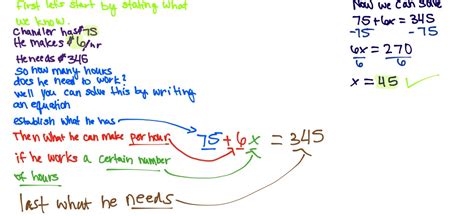 First let's start by stating what
we know.
Chandler has $75
He makes $6/hr
He needs $345
so how many hours
does he need to work?
well you can solve this by writing
an equation
establish what he has
Then what he can make per hour
if he works a certain number
of hours
last what he needs
75+6x = 345
Now we can solve
75+6x=345
-75 -75
6x = 270
6 6
x = 45 ✓